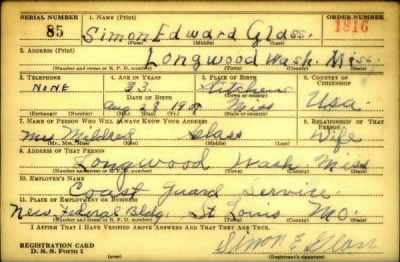 SERIAL NUMBER 1. NAME (Print) ORDER NUMBER
85 Simon Edward Glass. 1816
(First) (Middle) (Last)
2. ADDRESS (Print)
Longwood Wash. Miss.
(Number and street or R. F. D. number) (Town) (County) (State)
3. TELEPHONE 4. AGE IN YEARS 5. PLACE OF BIRTH 6. COUNTRY OF CITIZENSHIP
NONE 33.
DATE OF BIRTH
Aug 28 Miss Usa.
(Mo.) (Day) (Yr.) (State or country)
7. NAME OF PERSON WHO WILL ALWAYS KNOW YOUR ADDRESS 8. RELATIONSHIP OF THAT PERSON
Mrs Mildred Glass Wife
(Mr., Mrs., Miss) (First) (Middle) (Last)
9. ADDRESS OF THAT PERSON
Longwood Wash Miss
(Number and street or R. F. D. number) (Town) (County) (State)
10. EMPLOYER'S NAME
Coast Guard Service.
11. PLACE OF EMPLOYMENT OR BUSINESS
New Federal Bldg. St Louis Mo.
(Number and street or R. F. D. number) (Town) (County) (State)
I AFFIRM THAT I HAVE VERIFIED ABOVE ANSWERS AND THAT THEY ARE TRUE.
REGISTRATION CARD Simon E Glass
D. S. S. Form 1 (Registrant's signature)